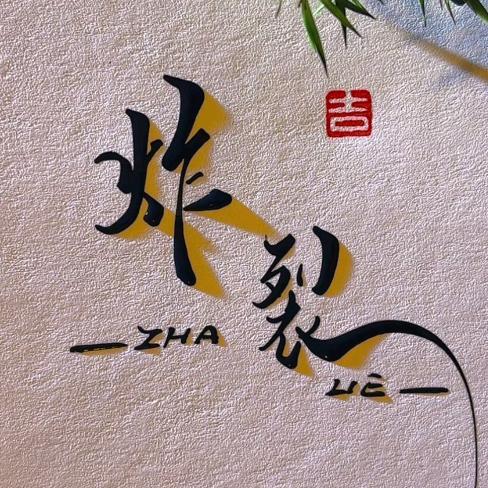 吉
炸裂
ZHA
LIE